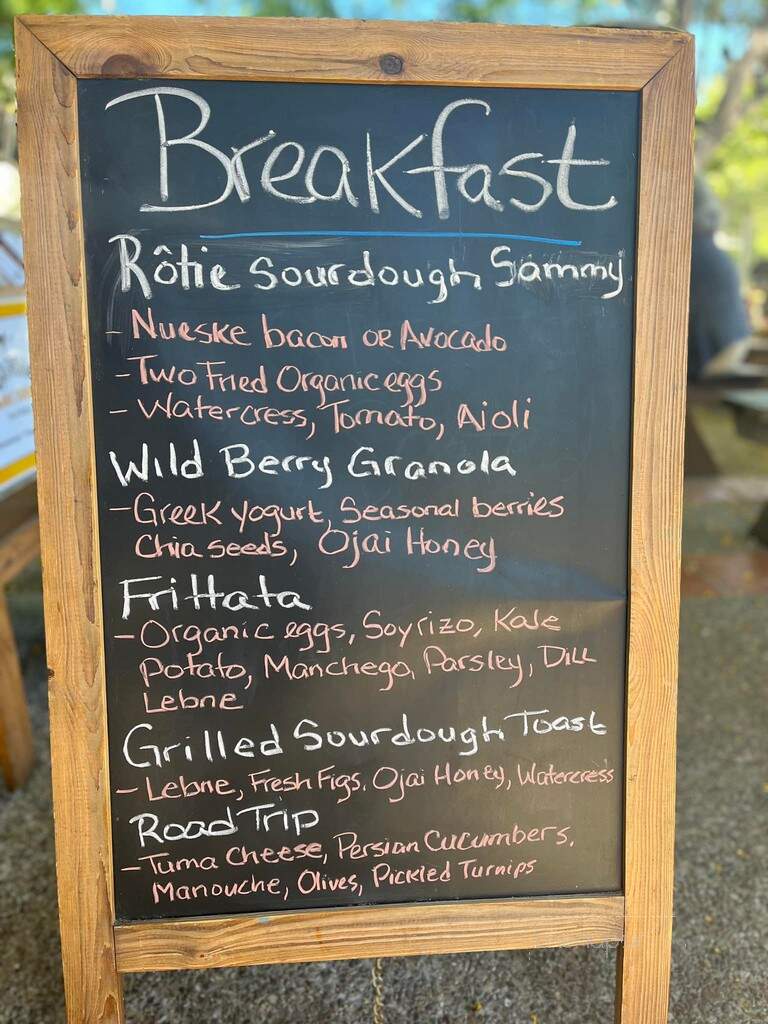 Breakfast
Rôtie Sourdough Sammy
- Nueske bacon or Avocado
- Two Fried Organic eggs
- Watercress, Tomato, Aioli
Wild Berry Granola
- Greek yogurt, Seasonal berries
Chia seeds, Ojai Honey
Frittata
- Organic eggs, Soyrizo, Kale
Potato, Manchego, Parsley, Dill
Lebne
Grilled Sourdough Toast
- Lebne, Fresh Figs, Ojai Honey, Watercress
Road Trip
- Tuma Cheese, Persian Cucumbers,
Manouche, Olives, Pickled Turnips